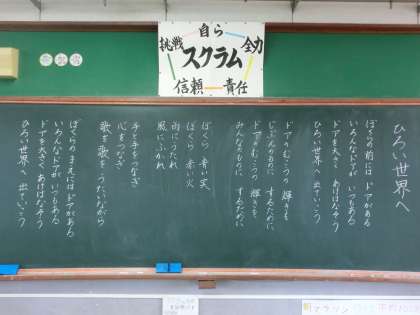 自ら
挑戦
全力
スクラム
信頼
責任
ひろい世界へ
ぼくらの前には ドアがある
いろんなドアが いつもある
ドアを大きく あけはなそう
ひろい世界へ 出ていこう
ドアのむこうの 輝きを
じぶんのものに するために
ドアのむこうの 輝きを
みんなのものに するために
ぼくら 青い実
ぼくら 赤い火
雨にうたれ
風にふかれ
手と手をつなぎ
心をつなぎ
歌を 歌を うたいながら
ぼくらのまえには ドアがある
いろんなドアが いつもある
ドアを大きく あけはなそう
ひろい世界へ 出ていこう
マラソン